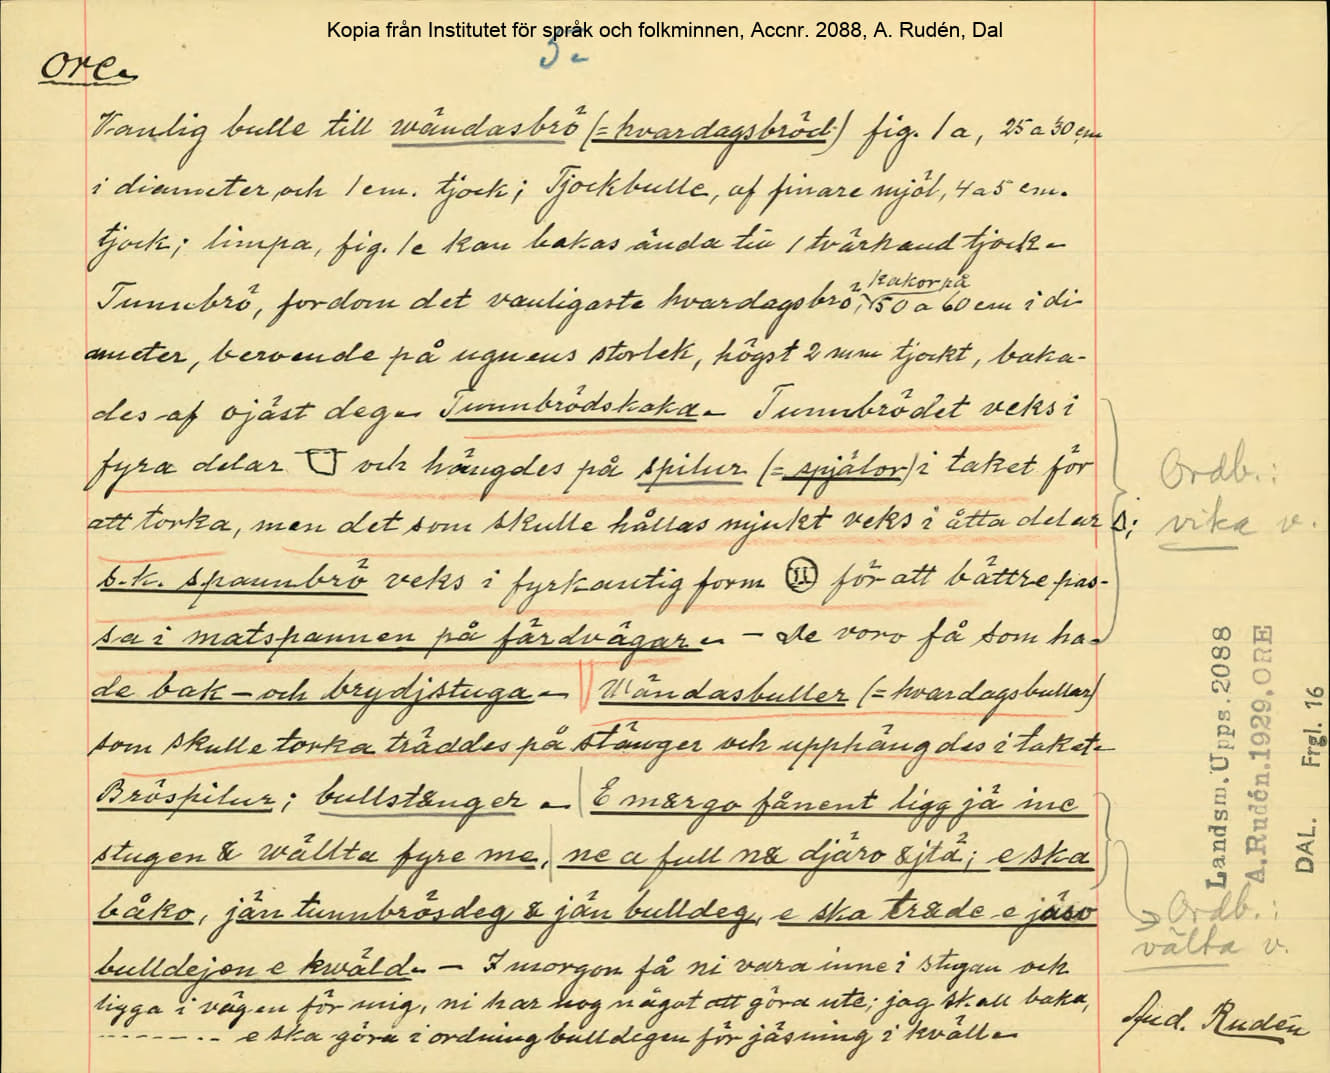 Kopia från Institutet för språk och folkminnen, Accnr. 2088, A. Rudén, Dal
5.
Ore.
Vanlig bulle till wändasbrö (= hvardagsbröd) fig. 1 a, 25 a 30 cm
i diameter, och 1 cm. tjock; Tjockbulle, af finare mjöl, 4 a 5 cm.
tjock; limpa, fig. 1c kan bakas ända till 1 tvärhand tjock.
Tunnbrö, fordom det vanligaste hvardagsbrö, kakor på 50 a 60 cm i di
ameter, beroende på ugnens storlek, högst 2 mm tjockt, baka-
des af ojäst deg. Tunnbrödskaka. Tunnbrödet veks i
fyra delar och hängdes på spilur (= spjälor) i taket för
att torka, men det som skulle hållas mjukt veks i åtta delar ;
s.k. spannbrö veks i fyrkantig form för att bättre pas-
sa i matspannen på färdvägar. - De voro få som ha-
de bak- och brydjstuga. Wändasbuller (= hvardagsbullar)
som skulle torka träddes på stänger och upphängdes i taket.
Bröspilur; bullstänger. E märgo fånent ligg jä ine
stugen & wällta fyre me, ne a full nä djäro äjtä; e ska
båko, jän tunnbrösdeg & jän bulldeg, e ska träde e jäso
bulldejen e kwäld. - I morgon få ni vara inne i stugan och
ligga i vägen för mig, ni har nog något att göra ute; jag skall baka,
- - - - - - - e ska göra i ordning bulldegen för jäsning i kväll.
Ordb.:
vika v.
Landsm. Upps. 2088
A. Rudén. 1929, ORE
DAL. Frgl. 16
Ordb.:
välta v.
And. Rudén